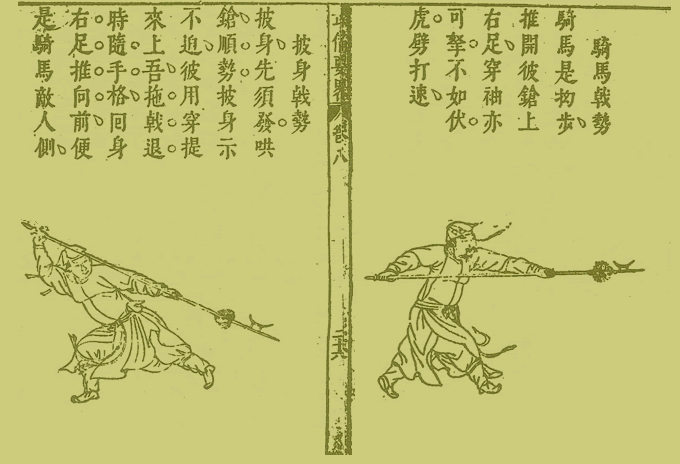 騎馬戟勢
騎馬是拘步
推開彼鎗上
右足穿袖亦
可拏不如伏
虎劈打速
武備要畧
卷八
二十六
披身戟勢
披身先須發哄
鎗順勢披身示
不追彼用穿提
來上吾拖戟退
時隨手格囘身
右足推向前便
是騎馬敵人側